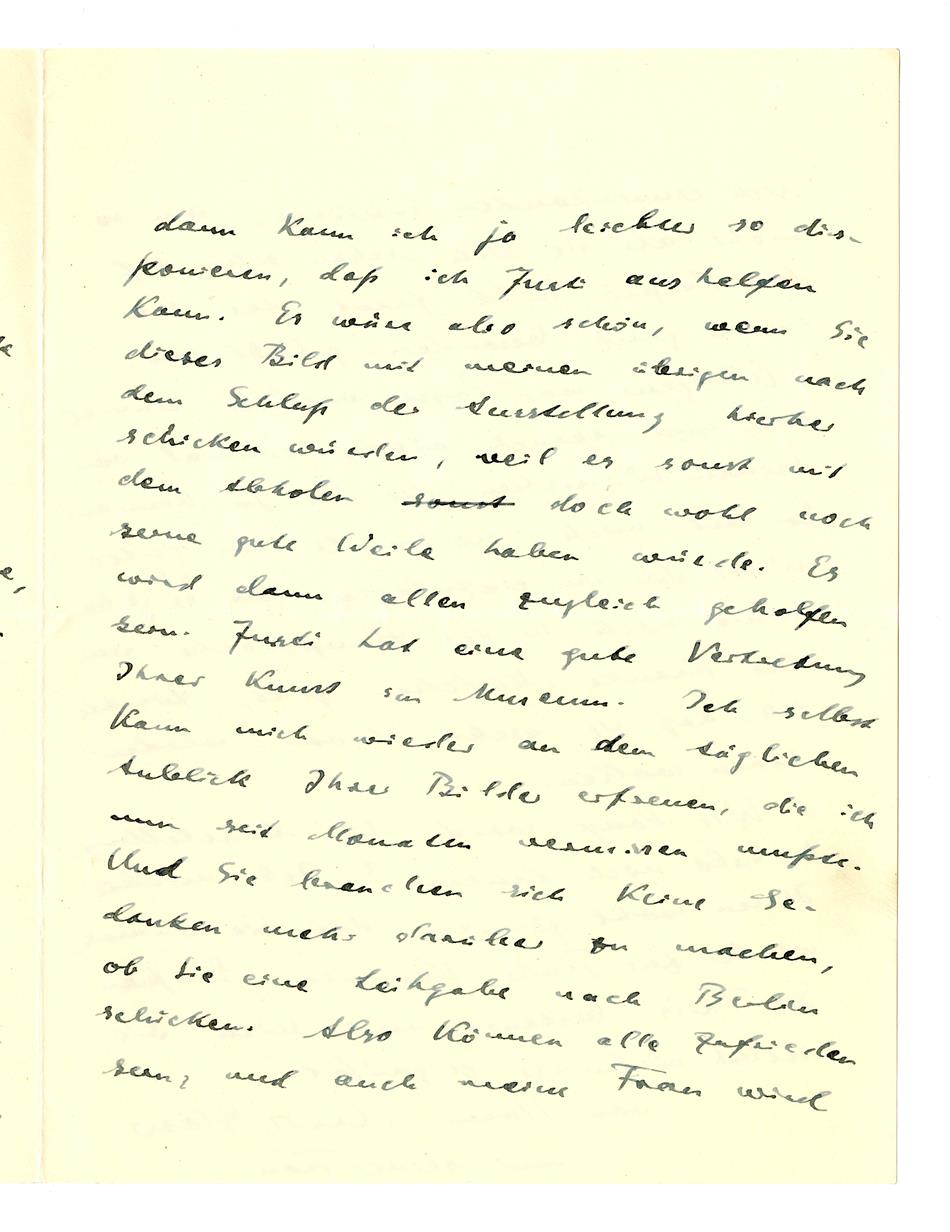 dann kann ich ja leichter so dis-
ponieren, daß ich Justi aushelfen
kann. Es wäre also schön, wenn Sie
dieses Bild mit meinen übrigen nach
dem Schluß der Ausstellung hierher
schicken würden, weil es sonst mit
dem Abholen sonst doch wohl noch
seine gute Weile haben würde. Es
wird dann allen zugleich geholfen
sein. Justi hat eine gute Vertretung
Ihrer Kunst im Museum. Ich selbst
kann mich wieder an dem täglichen
Anblick Ihrer Bilder erfreuen, die ich
nun seit Monaten vermissen mußte.
Und Sie brauchen sich keine Ge-
danken mehr darüber zu machen,
ob Sie eine Leihgabe nach Berlin
schicken. Also können alle zufrieden
sein, und auch meine Frau wird